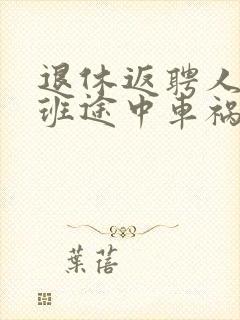 退休返聘人
班途中車禍
葉蓓